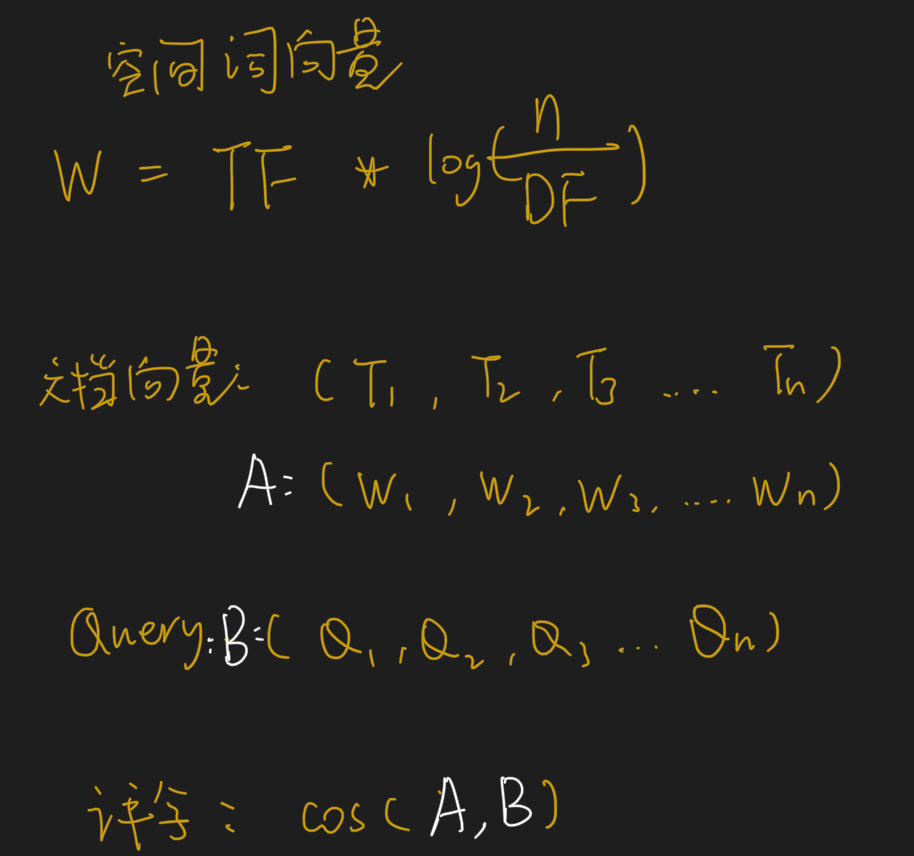 空间词向量
W = TF * log(n/DF)
文档向量: (T1, T2, T3 .... Tn)
A: (W1, W2, W3, .... Wn)
Query: B: (Q1, Q2, Q3 ... Qn)
评分: cos(A,B)